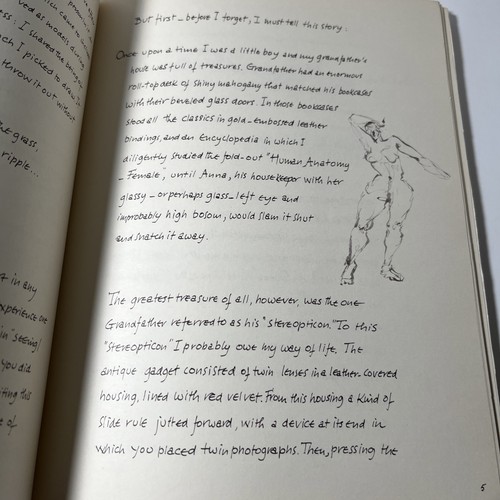 ess. I shared the being
ch I picked to draw. I
throw it out without
the grass,
ripple...
in any
experience one
in 'seeing'
you did
iting this
e of
But first – before I forget, I must tell this story.
Once upon a time I was a little boy and my grandfather's
house was full of treasures. Grandfather had an enormous
roll-top desk of shiny mahogany that matched his bookcases
with their beveled glass doors. In those bookcases
stood all the classics in gold-embossed leather
bindings, and an Encyclopedia in which I
diligently studied the fold-out "Human Anatomy
– Female", until Anna, his housekeeper with her
glassy – or perhaps glass – left eye and
improbably high bosom, would slam it shut
and snatch it away.
The greatest treasure of all, however, was the one
Grandfather referred to as his "stereopticon." To this
"stereopticon" I probably owe my way of life. The
antique gadget consisted of twin lenses in a leather-covered
housing, lined with red velvet. From this housing a kind of
slide rule jutted forward, with a device at its end in
which you placed twin photographs. Then, pressing the
5